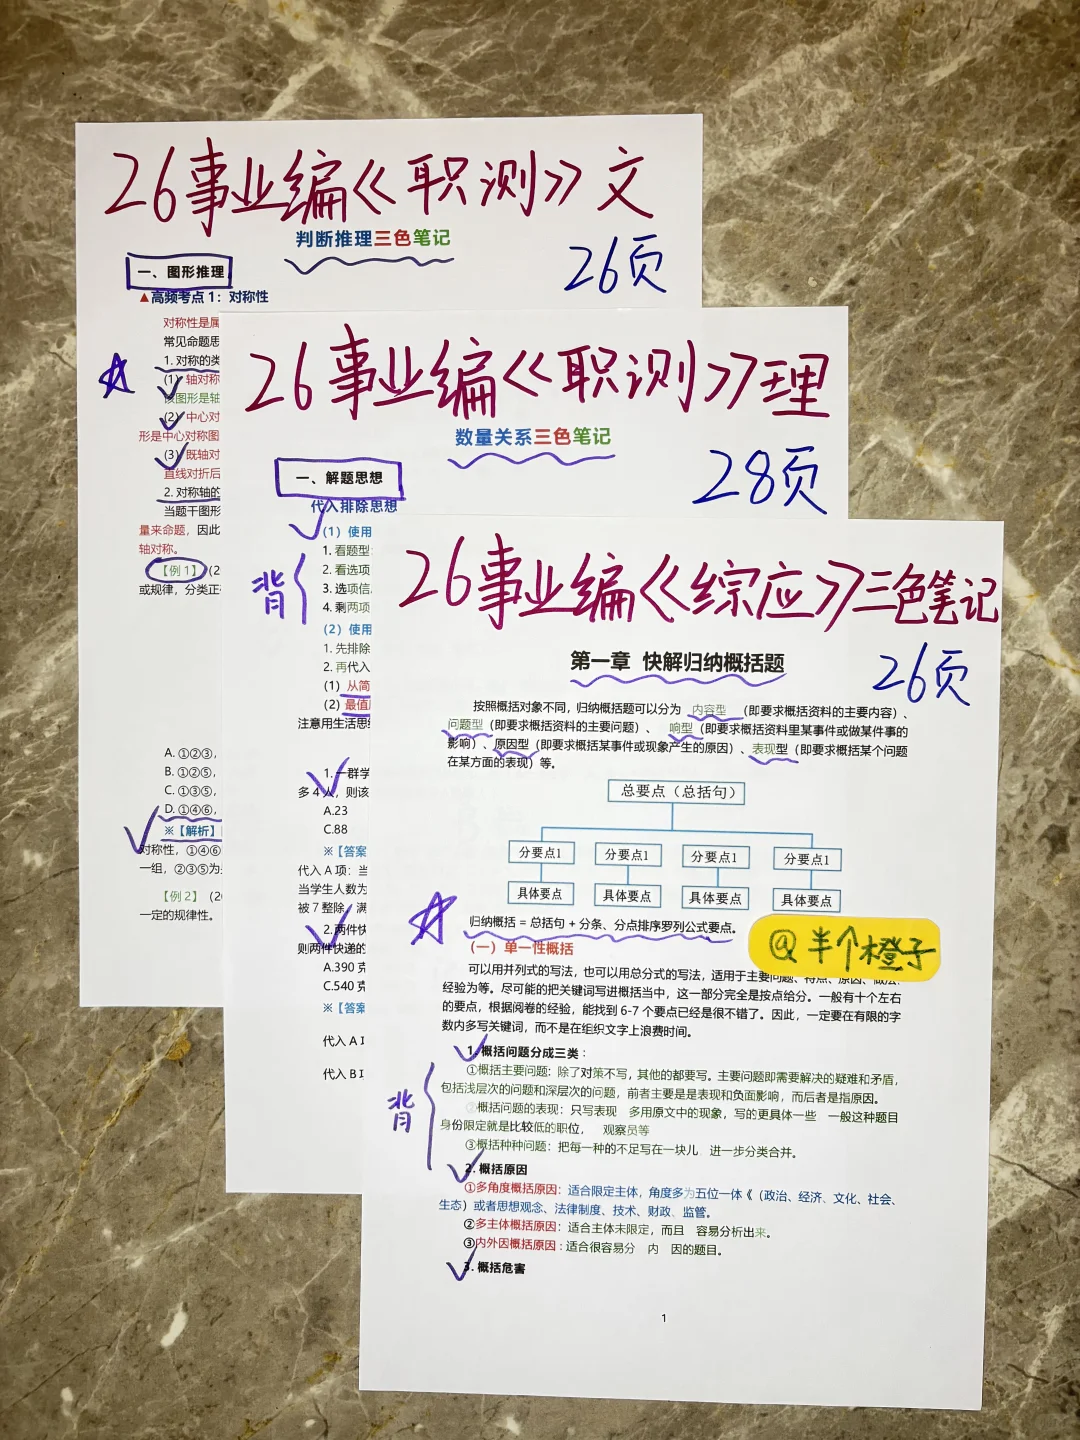 26事业编《职测》文
判断推理三色笔记
26页
一、图形推理
▲高频考点1：对称性
对称性是属
常见命题思
1. 对称的类
(1) 轴对称
该图形是轴
(2) 中心对
形是中心对称图
(3) 既轴对
直线对折后
2. 对称轴的
当题干图形
量来命题，因此
轴对称。
【例1】（2
或规律，分类正
A. ①②③，
B. ①②⑤，
C. ①③⑤，
D. ①④⑥，
※【解析】
对称性，①④⑥
一组，②③⑤为
【例2】（20
一定的规律性。
26事业编《职测》理
数量关系三色笔记
28页
一、解题思想
代入排除思想
（1）使用
背
1. 看题型
2. 看选项
3. 选项信
4. 剩两项
（2）使用
1. 先排除
2. 再代入
(1) 从简
(2) 最值
注意用生活思
1. 一群学
多4人，则该
A.23
C.88
※【答案
代入A项：当
当学生人数为
被7整除，满
2. 两件快
则两件快递的
A.390克
C.540克
※【答案
代入A
代入B
26事业编《综应》三色笔记
26页
第一章 快解归纳概括题
按照概括对象不同，归纳概括题可以分为 内容型 （即要求概括资料的主要内容）、
问题型（即要求概括资料的主要问题）、 响型（即要求概括资料里某事件或做某件事的
影响）、原因型（即要求概括某事件或现象产生的原因）、表现型（即要求概括某个问题
在某方面的表现）等。
总要点（总括句）
分要点1 分要点1 分要点1 分要点1
具体要点 具体要点 具体要点 具体要点
归纳概括 = 总括句 + 分条、分点排序罗列公式要点。
@半个橙子
（一）单一性概括
可以用并列式的写法，也可以用总分式的写法，适用于主要问题、特点、原因、做法、
经验为等。尽可能的把关键词写进概括当中，这一部分完全是按点给分。一般有十个左右
的要点，根据阅卷的经验，能找到 6-7 个要点已经是很不错了。因此，一定要在有限的字
数内多写关键词，而不是在组织文字上浪费时间。
1. 概括问题分成三类：
①概括主要问题：除了对策不写，其他的都要写。主要问题即需要解决的疑难和矛盾，
包括浅层次的问题和深层次的问题，前者主要是是表现和负面影响，而后者是指原因。
背
②概括问题的表现：只写表现 多用原文中的现象，写的更具体一些 一般这种题目
身份限定就是比较低的职位， 观察员等
③概括种种问题：把每一种的不足写在一块儿 进一步分类合并。
2. 概括原因
①多角度概括原因：适合限定主体，角度多为五位一体《（政治、经济、文化、社会、
生态）或者思想观念、法律制度、技术、财政、监管。
②多主体概括原因：适合主体未限定，而且 容易分析出来。
③内外因概括原因：适合很容易分 内 因的题目。
3. 概括危害
1